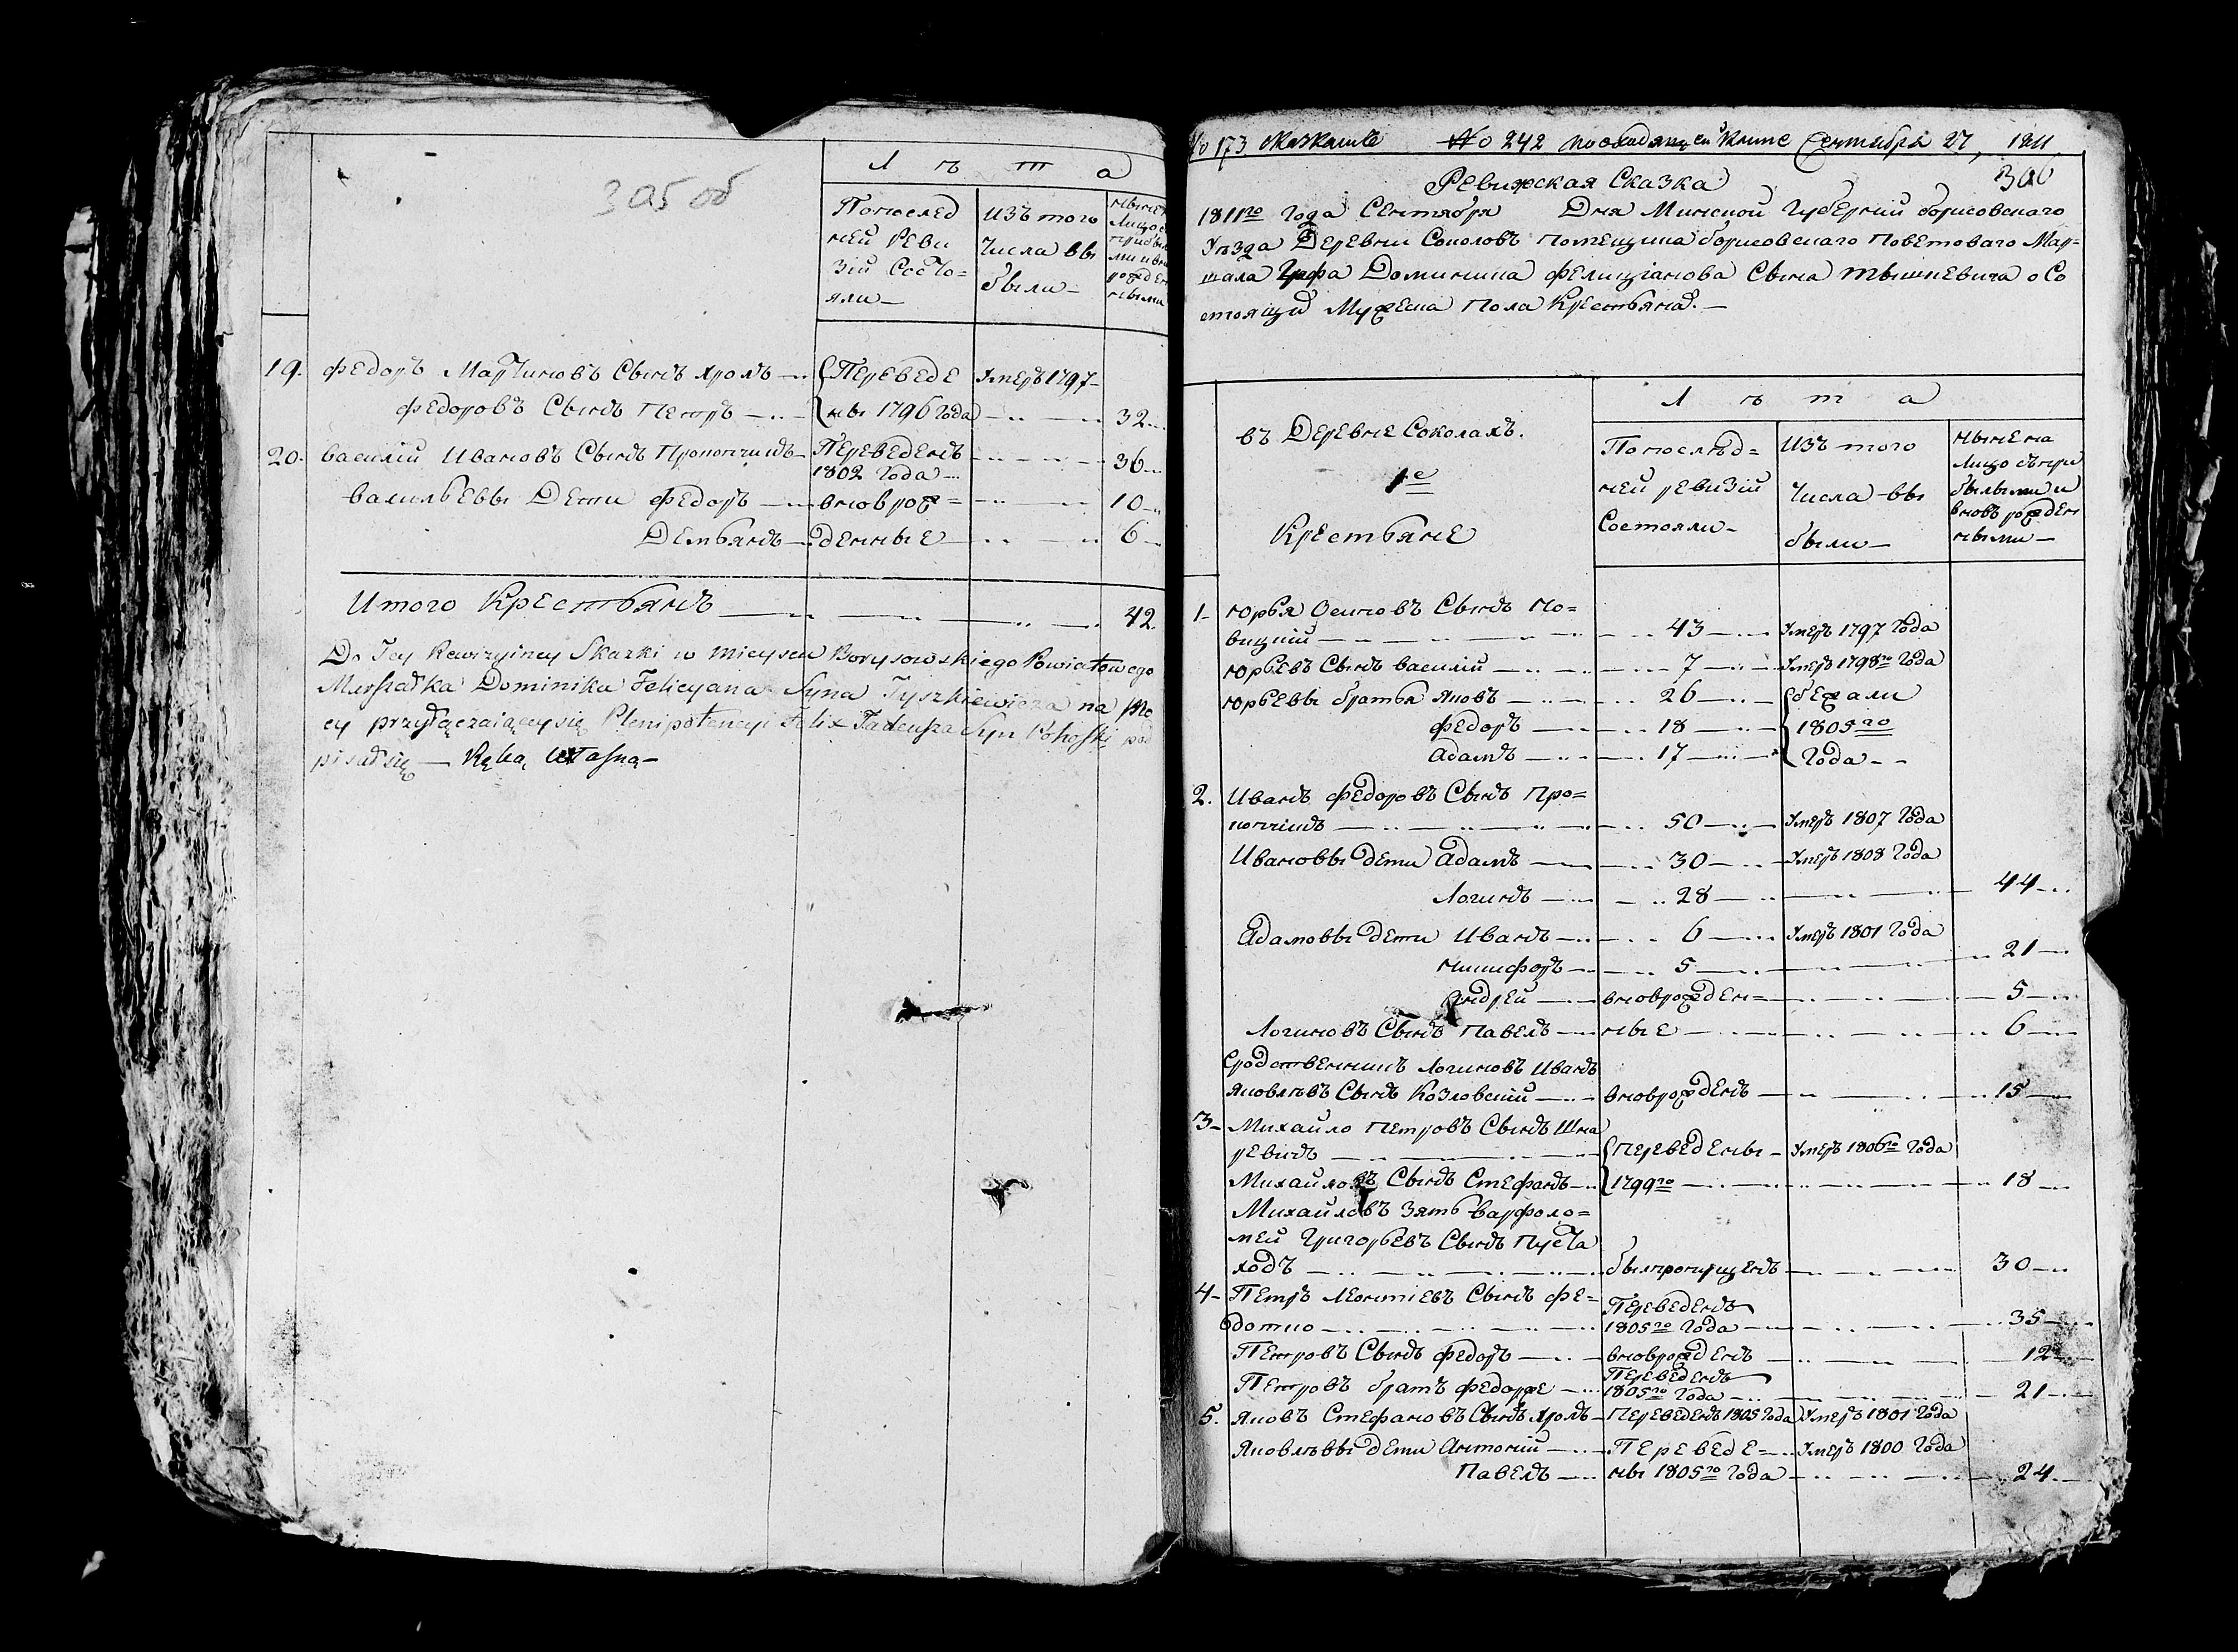 305 об
Л ѣ т а
По послед
ней Реви
зіи Состо=
яли—
Изъ того
Числа вы
были—
19. Федоръ Мартиновъ Сынъ Хромъ — Переведе Умеръ 1797—
Федоровъ Сынъ Петръ — ны 1796 Года — 32
20. Василій Ивановъ Сынъ Прокопчикъ — Переведенъ — 36
1802 Года —
Васильевы Дети Федоръ — вновь рож= — 10
Демьянъ — денные — 6
Итого Крестьянъ — 42.
Do Tey Rewizyiney Skazki w mieyscu Borysowskiego Powiatowego
Marszałka Dominika Felicyana Syna Tyszkiewicza na mo
cy przyłączaiącey się Plenipotencyi Felix Tadeusza Syn Rohoski pod
pisał się — Ręką własną —
No 173 No 242 по входящей книге Сентября 27, 1811
306
Ревижская Сказка
1811го Года Сентября Дня Минской Губерніи борисовскаго
Уезда Деревни Соколовъ помещика борисовскаго Поветоваго Мар=
шала Графа Доминика Фелиціанова Сына Тышкевича о Со
стоящих Мужеска Пола Крестьянах.—
Въ Деревне Соколахъ.
1е
Крестьяне
Л ѣ т а
По послѣд=
ней ревизіи
Состояли—
Изъ того
Числа вы
были—
Ныне на
Лицо съ при
былыми и
вновь рожден
ными—
1. Юрья Осиповъ Сынъ Но=
вицкій — 43 — Умеръ 1797 Года
Юрьевъ Сынъ Василій — 7 — Умеръ 1798го Года
Юрьевы братья Яковъ — 26 — бежали
Федоръ — 18 — 1805го
Адамъ — 17 — Года —
2. Иванъ Федоровъ Сынъ Про=
копчикъ — 50 — Умеръ 1807 Года
Ивановы дети Адамъ — 30 — Умеръ 1808 Года
Логинъ — 28 — 44
Адамовы дети Иванъ — 6 — Умеръ 1801 Года
Никифоръ — 5 — 21
Андрей — вновьрожден= — 5
Логиновъ Сынъ Павелъ — ные — 6
Сродственникъ Логиновъ Иванъ
Яковлѣвъ Сынъ Козловскій — вновьрожденъ — 15
3. Михайло Петровъ Сынъ Шка
ревичъ — Переведены — Умеръ 1806го Года
Михайловъ Сынъ Стефанъ — 1799го — 18
Михайловъ Зять Варфоло=
мей Григорьевъ Сынъ Пуста
ходъ — былпропущенъ — 30
4. Петръ Леонтіевъ Сынъ Фе= Переведенъ
дотко — 1805го Года — 35
Петровъ Сынъ Федоръ — вновьрожденъ — 12
Переведенъ
Петровъ братъ Федоръ же — 1805го Года — 21
5. Яковъ Стефановъ Сынъ Хромъ — Переведенъ 1805 Года Умеръ 1801 Года
Яковлѣвы дети Антоній — Переведе= Умеръ 1800 Года
Павелъ — ны 1805го Года — 24